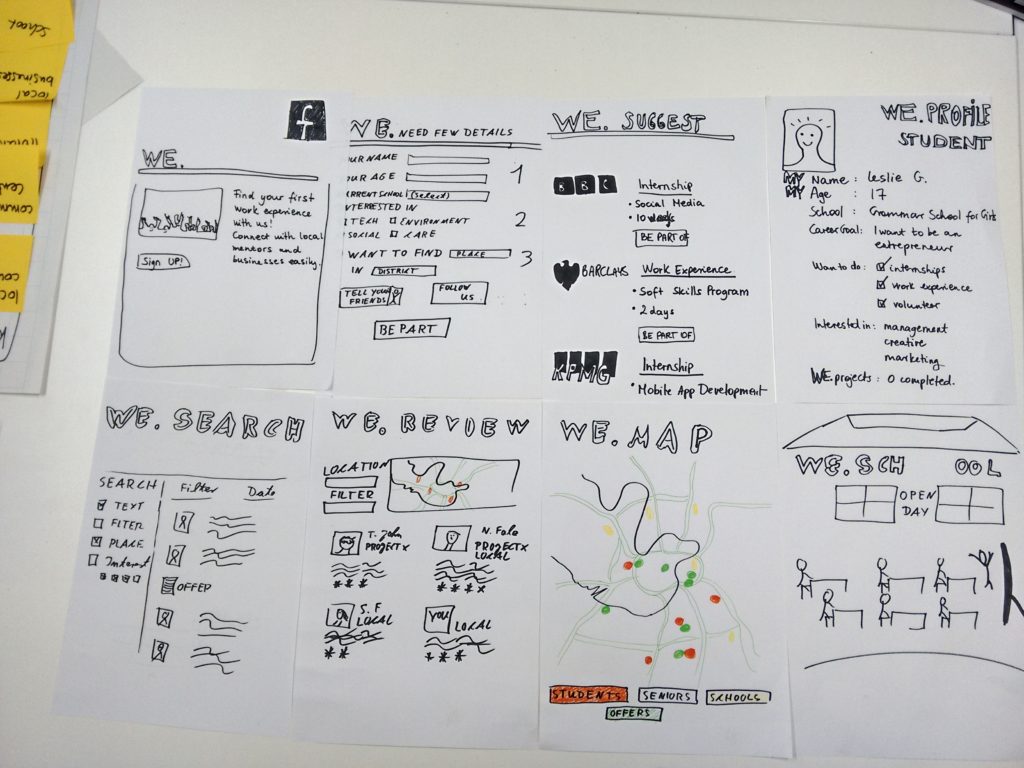 school
businesses
local
local
f
WE.
Find your first
work experience
with us!
Connect with local
mentors and
businesses easily.
Sign UP!
WE. NEED FEW DETAILS
UR NAME
UR AGE
1
RRENT SCHOOL (Select)
TERESTED IN
TECH ENVIRONMENT
2
SOCIAL CARE
WANT TO FIND PLACE
3
IN DISTRICT
TELL YOUR
FRIENDS
FOLLOW
US
BE PART
WE. SUGGEST
BBC
Internship
• Social Media
• 10 weeks
BE PART OF
BARCLAYS
Work Experience
• Soft Skills Program
• 2 days
BE PART OF
KPMG
Internship
• Mobile App Development
WE. PROFILE
STUDENT
MY Name : Leslie G.
MY Age : 17
School : Grammar School for Girls
Career Goal: I want to be an
entrepreneur
Want to do: internships
work experience
volunteer
Interested in: management
creative
marketing
WE.projects : 0 completed.
WE. SEARCH
SEARCH
Filter
Date
TEXT
FITER
PLACE
Interest
OFFER
WE. REVIEW
LOCATION
FILTER
T. John
PROJECT X
N. Fola
PROJECT X
LOCAL
S. F
LOCAL
YOU
LOCAL
WE. MAP
STUDENTS
SENIORS
SCHOOLS
OFFERS
WE. SCH OOL
OPEN
DAY